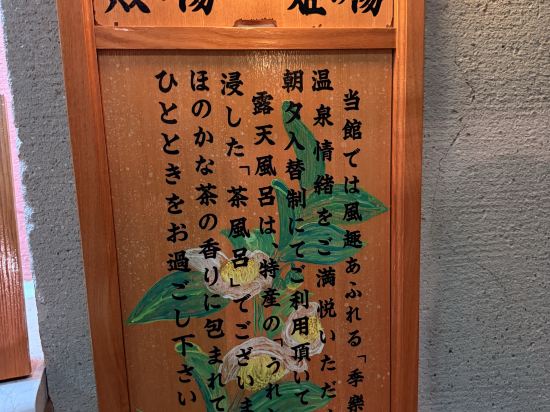 姫の湯
の湯
当館では風趣あふれる「季樂
温泉情緒をご満悦いただ
朝夕入替制にてご利用頂いて
露天風呂は、特産の「うれし
浸した「茶風呂」でございま
ほのかな茶の香りに包まれて
ひとときをお過ごし下さい